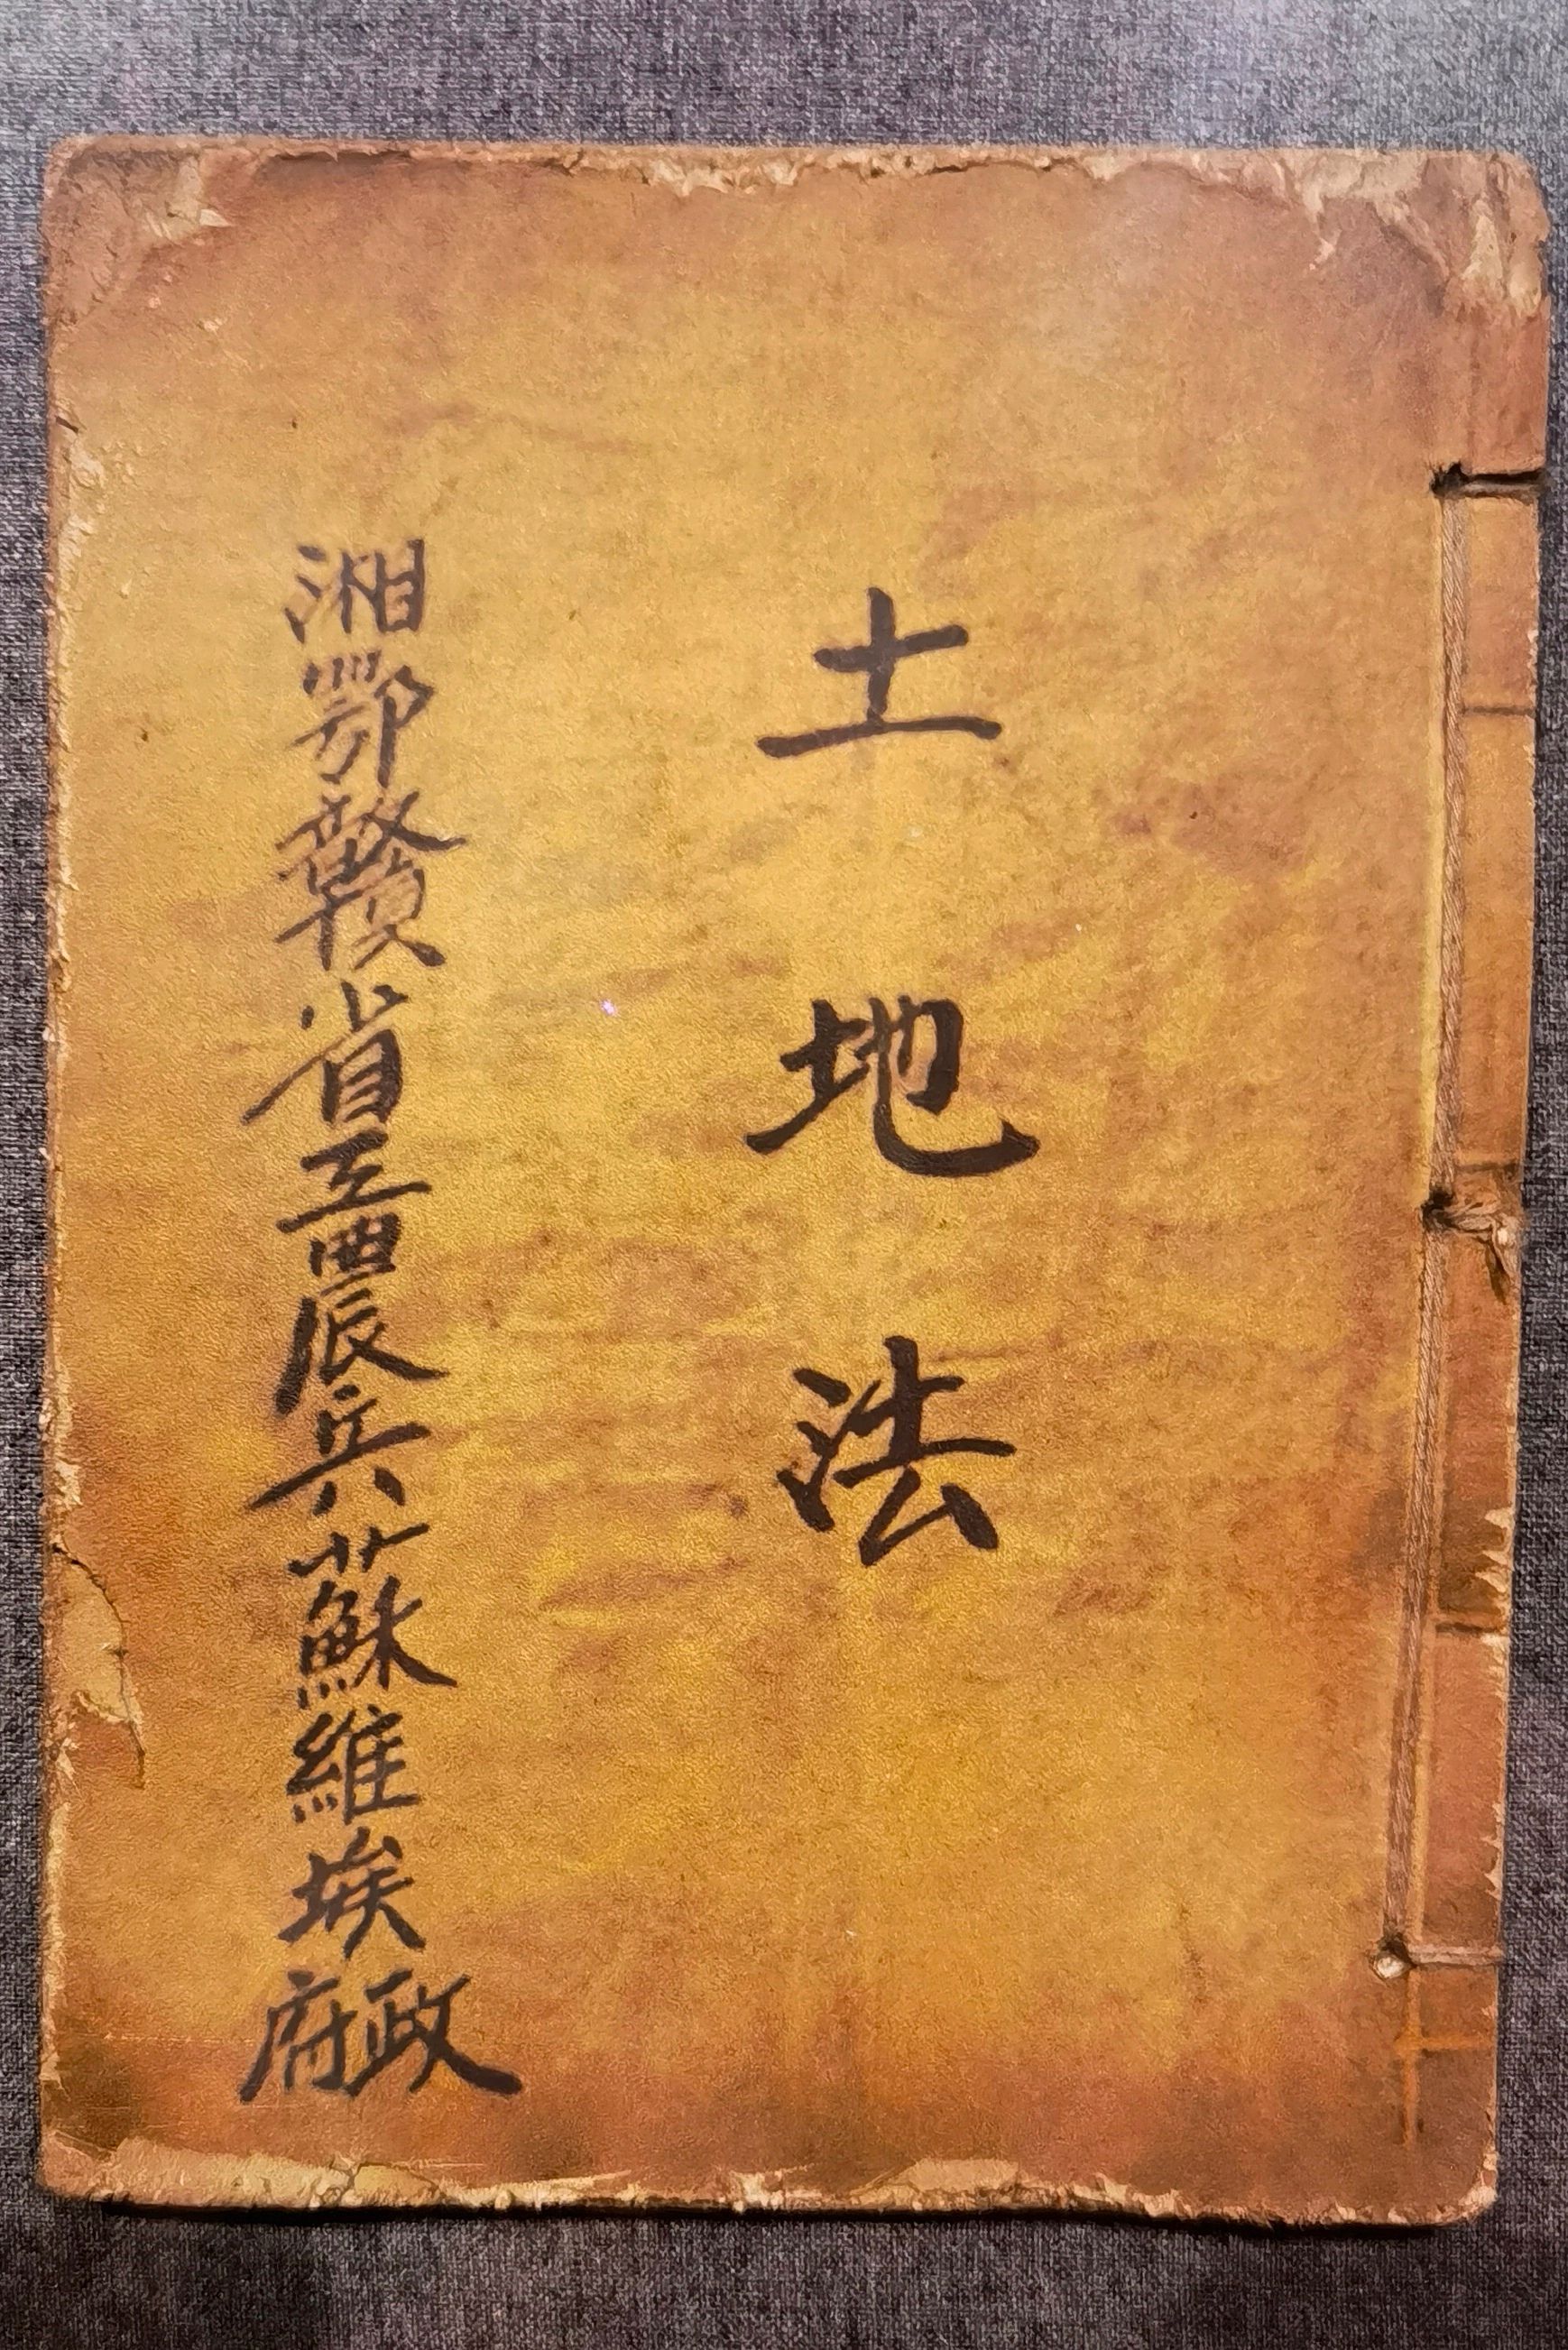 土地法
湘鄂贛省工農兵蘇維埃政府